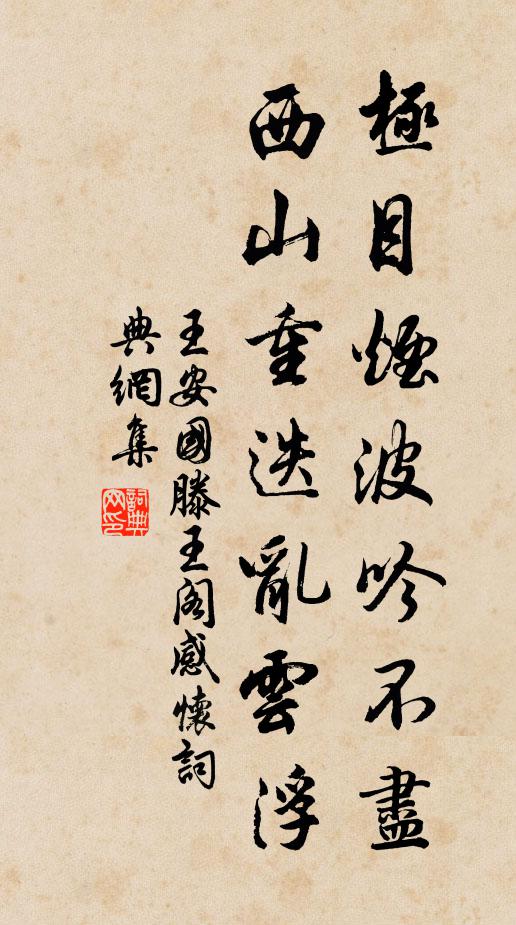 極目煙波吟不盡
西山重迭亂雲浮
王安國滕王阁感懷詞
典網集
詞典网印